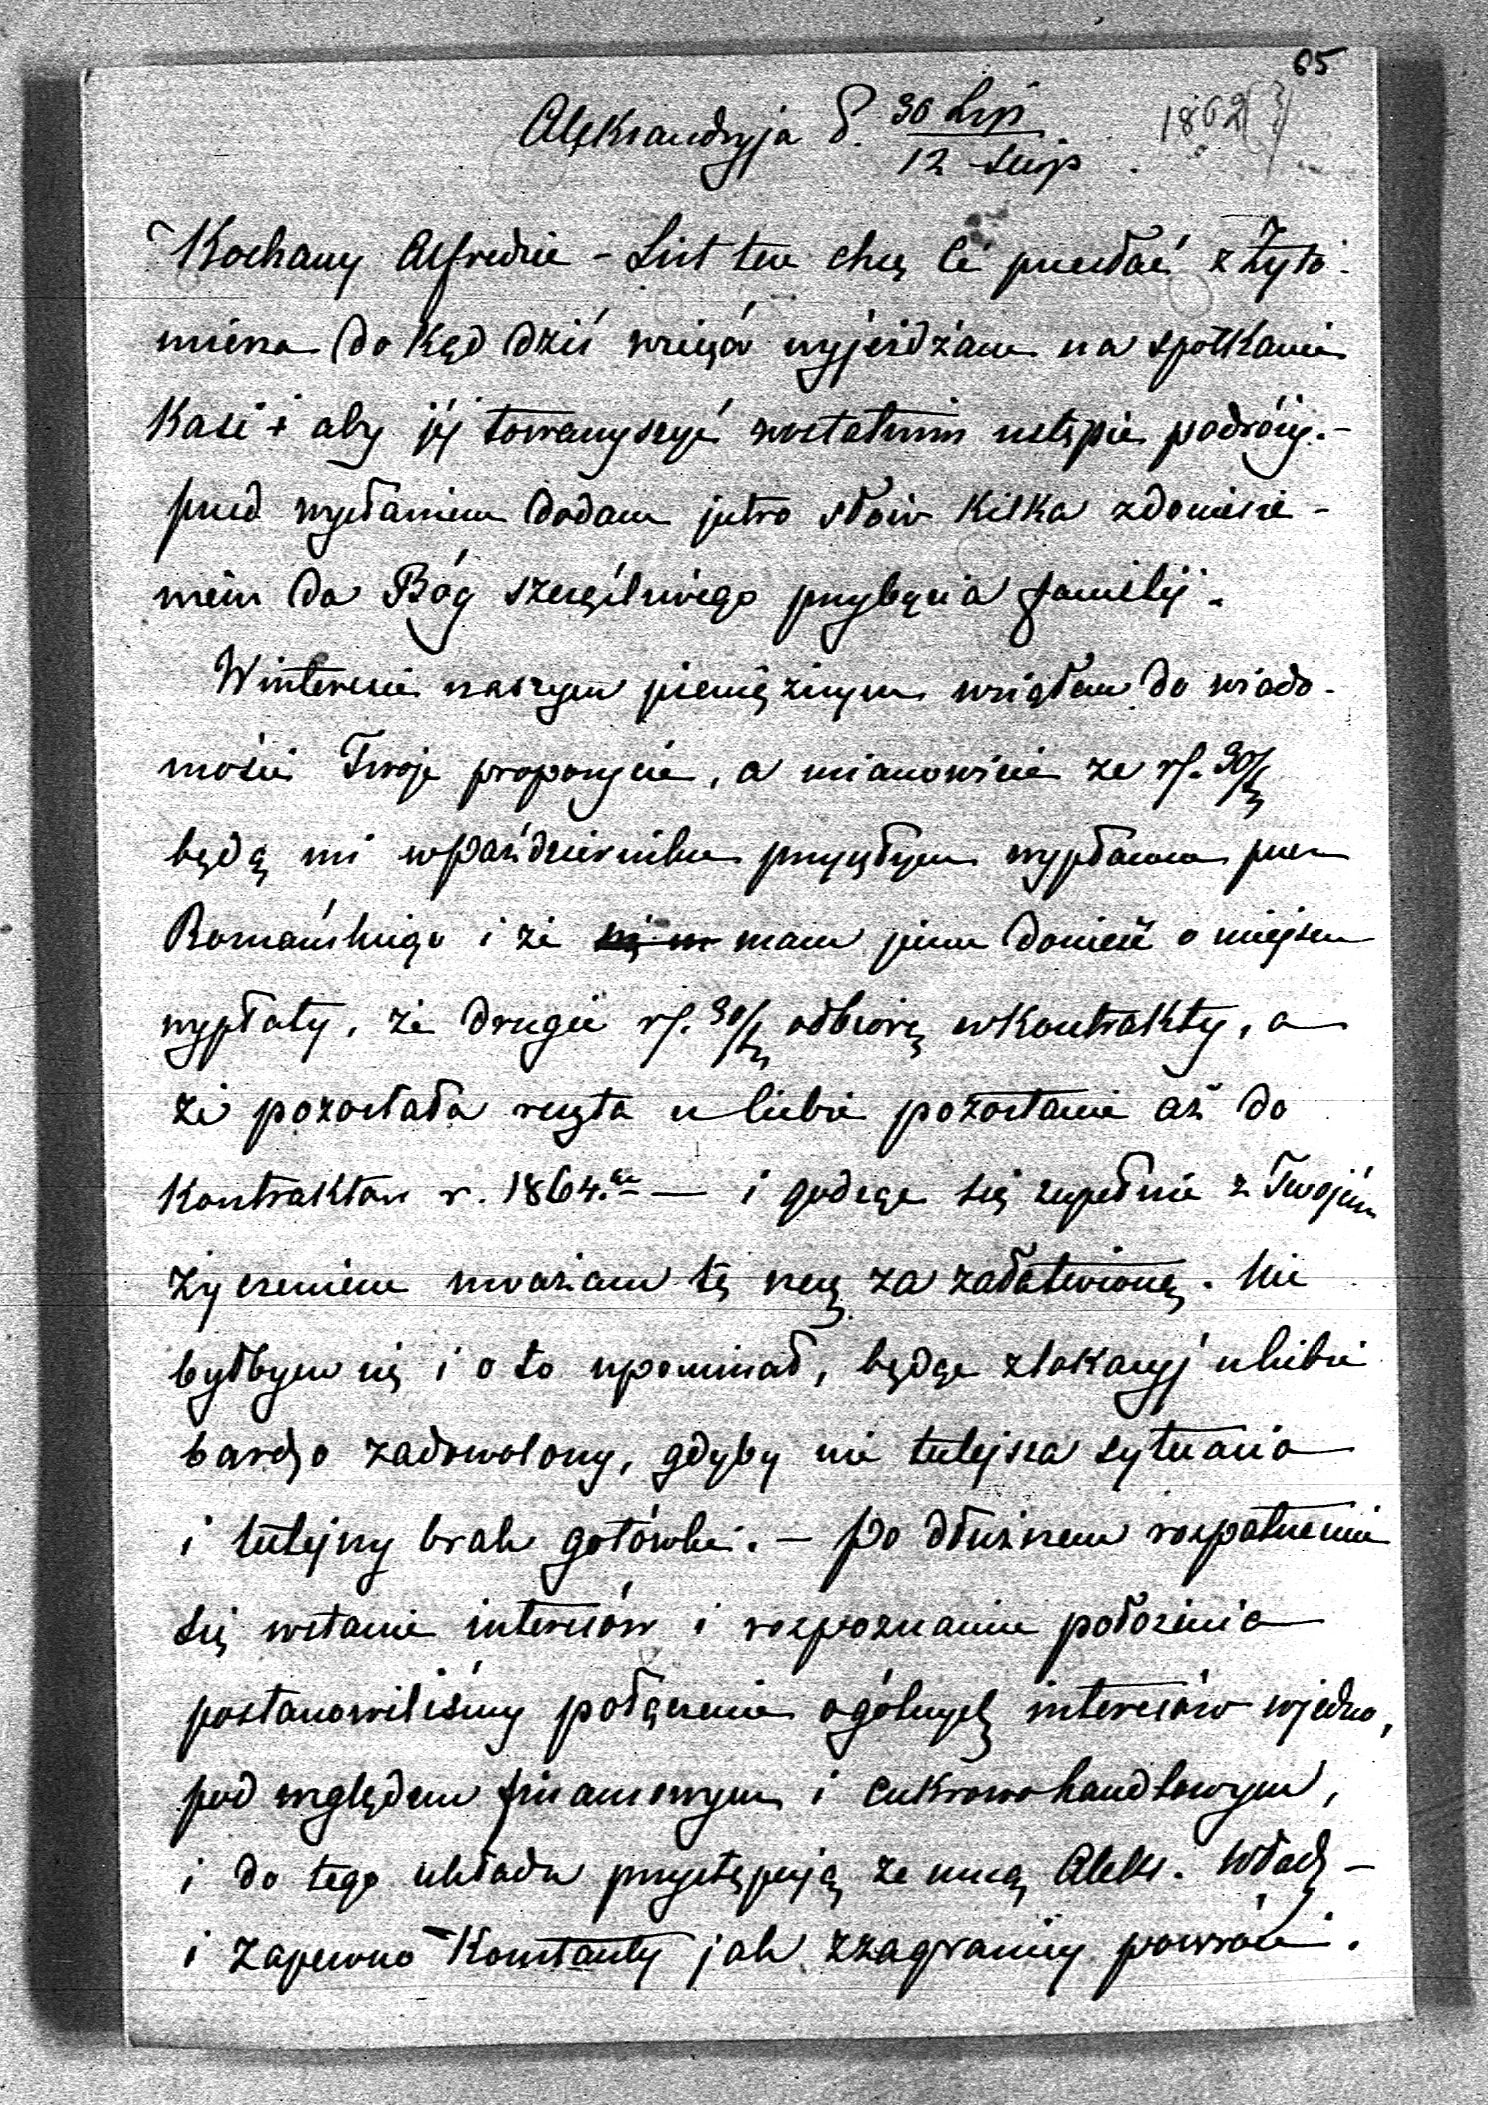 65
Aleksandryja d. 30 Lip / 12 Sierp 1862(?)
Kochany Alfredzie – List ten chcę Ci przesłać z Żyto-
mierza do kąd dziś wieczór wyjeżdżam na spotkanie
Kasi i aby jéj towarzyszyć w ostatnim ustępie podróży. –
przed wysłaniem dodam jutro słów kilka z doniesie-
niem da Bóg szczęśliwego przybycia familij.
W interesie naszym pieniężnym wziąłem do wiado-
mości Twoje propozycie, a mianowicie ze rs. 30/m
będą mi w Październiku przyszłym wypłacone przez
Romańskiego i że mam jemu donieść o miejscu
wypłaty, że drugie rs. 30/m odbiorę w Kontrakty, a
że pozostała reszta u Ciebie pozostanie aż do
Kontraktów r. 1864. – i godząc się zupełnie z Twojém
życzeniem uważam tę rzecz za załatwioną. Nie
byłbym się i o to upominał, będąc z lokacyj u Ciebie
bardzo zadowolony, gdyby nie tutejsza sytuacia
i tutejszy brak gotówki. – po dłuższem rozpatrzeniu
się w stanie interesów i rozpoznaniu położenia
postanowiliśmy połączenie ogólnych interesów w jedno,
pod względem finansowym i cukrowo handlowym,
i do tego układu przystępują ze mną Aleks. Władz –
i zapewno Konstanty jak z zagranicy powróci.